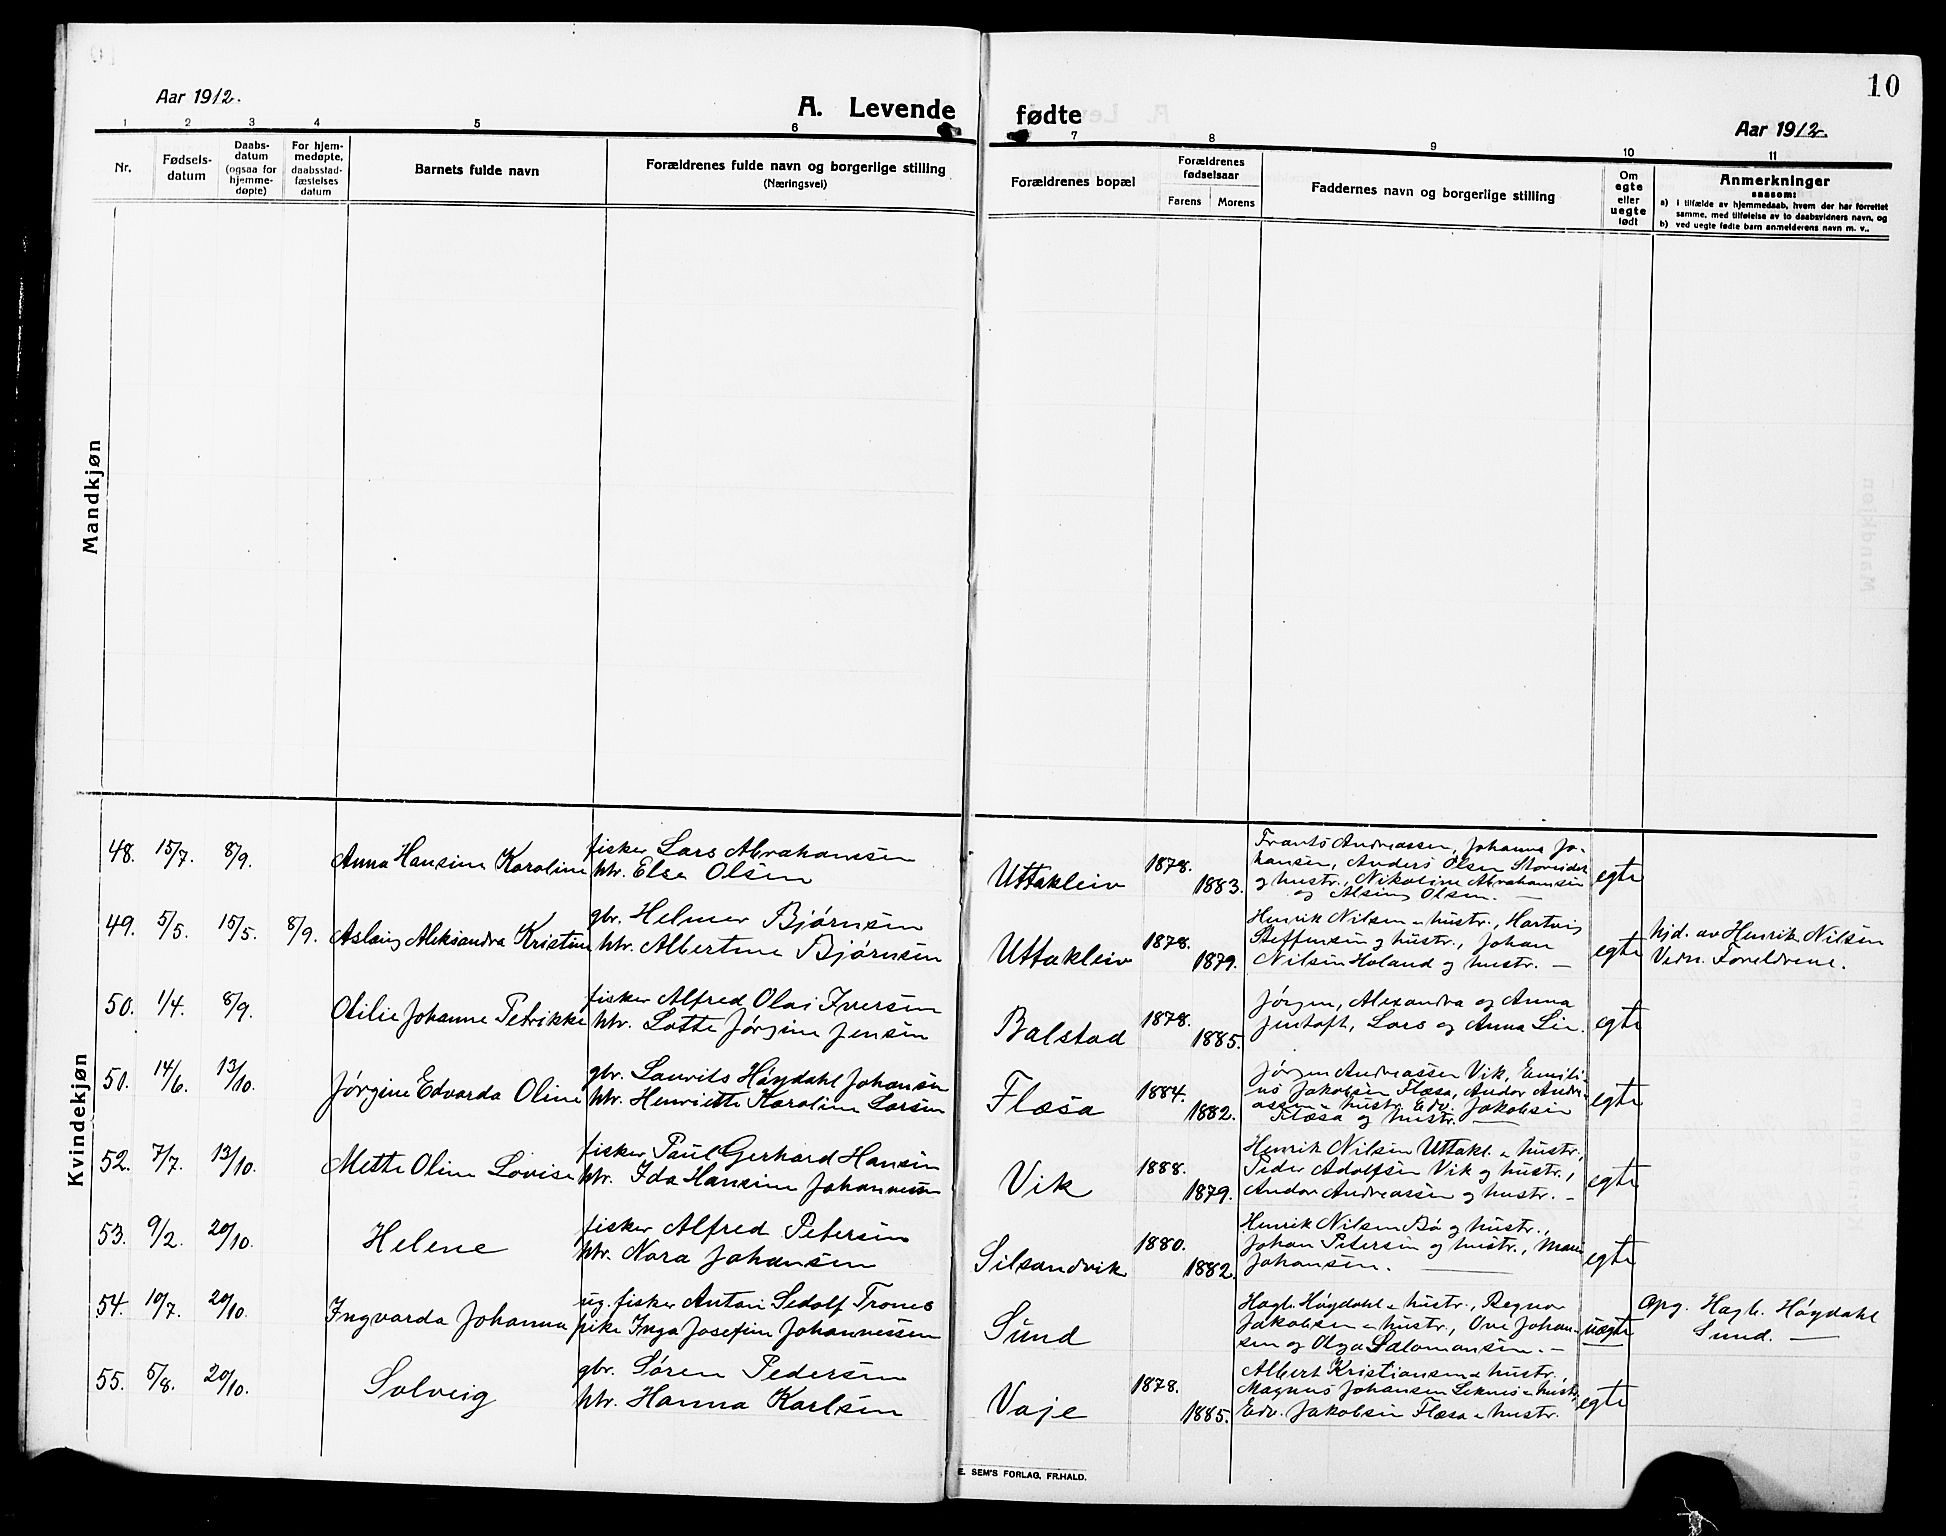 10
Aar 1912.
A. Levende fødte
Aar 1912.
1 2 3 4 5 6 7 8 9 10 11
Nr.
Fødsels-
datum
Daabs-
datum
(ogsaa for
hjemme-
døpte)
For hjem-
medøpte,
daabsstad-
fæstelses
datum
Barnets fulde navn
Forældrenes fulde navn og borgerlige stilling
(Næringsvei)
Forældrenes bopæl
Forældrenes
fødselsaar
Farens Morens
Faddernes navn og borgerlige stilling
Om
egte
eller
uegte
født
Anmerkninger
saasom:
a) i tilfælde av hjemmedaab, hvem der har forrettet
samme, med tilføielse av to daabsvidners navn, og
b) ved uegte fødte barn anmelderens navn m. v..
Mandkjøn
Kvindekjøn
48. 15/7. 8/9. Anna Hansine Karoline
fisker Lars Abrahamsen
htr. Else Olsen
Uttakleiv 1878. 1883.
Frants Andreassen, Johanna Jo-
hansen, Anders Olsen Storeidet
og hustr., Nikoline Abrahamsen
og Alsing Olsen. —
egte
49. 5/5. 15/5. 8/9. Aslaug Aleksandra Kristine
gbr. Helmer Bjørnsen
htr. Albertine Bjørnsen
Uttakleiv 1878. 1879.
Henrik Nilsen o hustr., Hartvig
Steffensen og hustr., Johan
Nilsen Holand og hustr. —
egte
hjd. av Henrik Nilsen
Vidn. Foreldrene.
50. 1/4. 8/9. Otilie Johanne Petrikke
fisker Alfred Olai Iversen
htr. Lotte Jørgine Jensen
Balstad 1878. 1885.
Jørgen, Alexandra og Anna
Jentoft, Lars og Anna Lie.
egte
51. 14/6. 13/10. Jørgine Edvarda Oline
gbr. Laurits Høydahl Johansen
htr. Henriette Karoline Larsen
Flæsa 1884. 1882.
Jørgen Andreassen Vik, Emili-
us Jakobsen Flæsa, Andor Andre-
assen o hustr. Edv. Jakobsen
Flæsa og hustr. —
egte
52. 7/7. 13/10. Mette Oline Lovise
fisker Paul Gerhard Hansen
htr. Ida Hansine Johannessen
Vik 1888. 1879.
Henrik Nilsen Uttakl. o hustr.,
Peder Adolfsen Vik og hustr.,
Andor Andreassen og hustr. —
egte
53. 9/2. 20/10. Helene
fisker Alfred Petersen
htr. Nora Johansen
Silsandvik 1880. 1882.
Henrik Nilsen Bø og hustr.,
Johan Petersen og hustr., Marie
Johansen. —
egte
54. 10/7. 20/10. Ingvarda Johanna
ug. fisker Anton Sedolf Trones
pike Inga Josefine Johannessen
Sund
Hagb. Høydahl o hustr., Regnor
Jakobsen o hustr., Ove Johan-
sen og Olga Salomonsen. —
uegte
Opg. Hagb. Høydahl
Sund. —
55. 5/8. 20/10. Solveig
gbr. Søren Pedersen
htr. Hanna Karlsen
Vaje 1878. 1885.
Albert Kristiansen o hustr.,
Magnus Johansen Leknes o hustr.
Edv. Jakobsen Flæsa o hustr.
egte
E. SEM'S FORLAG, FR.HALD.